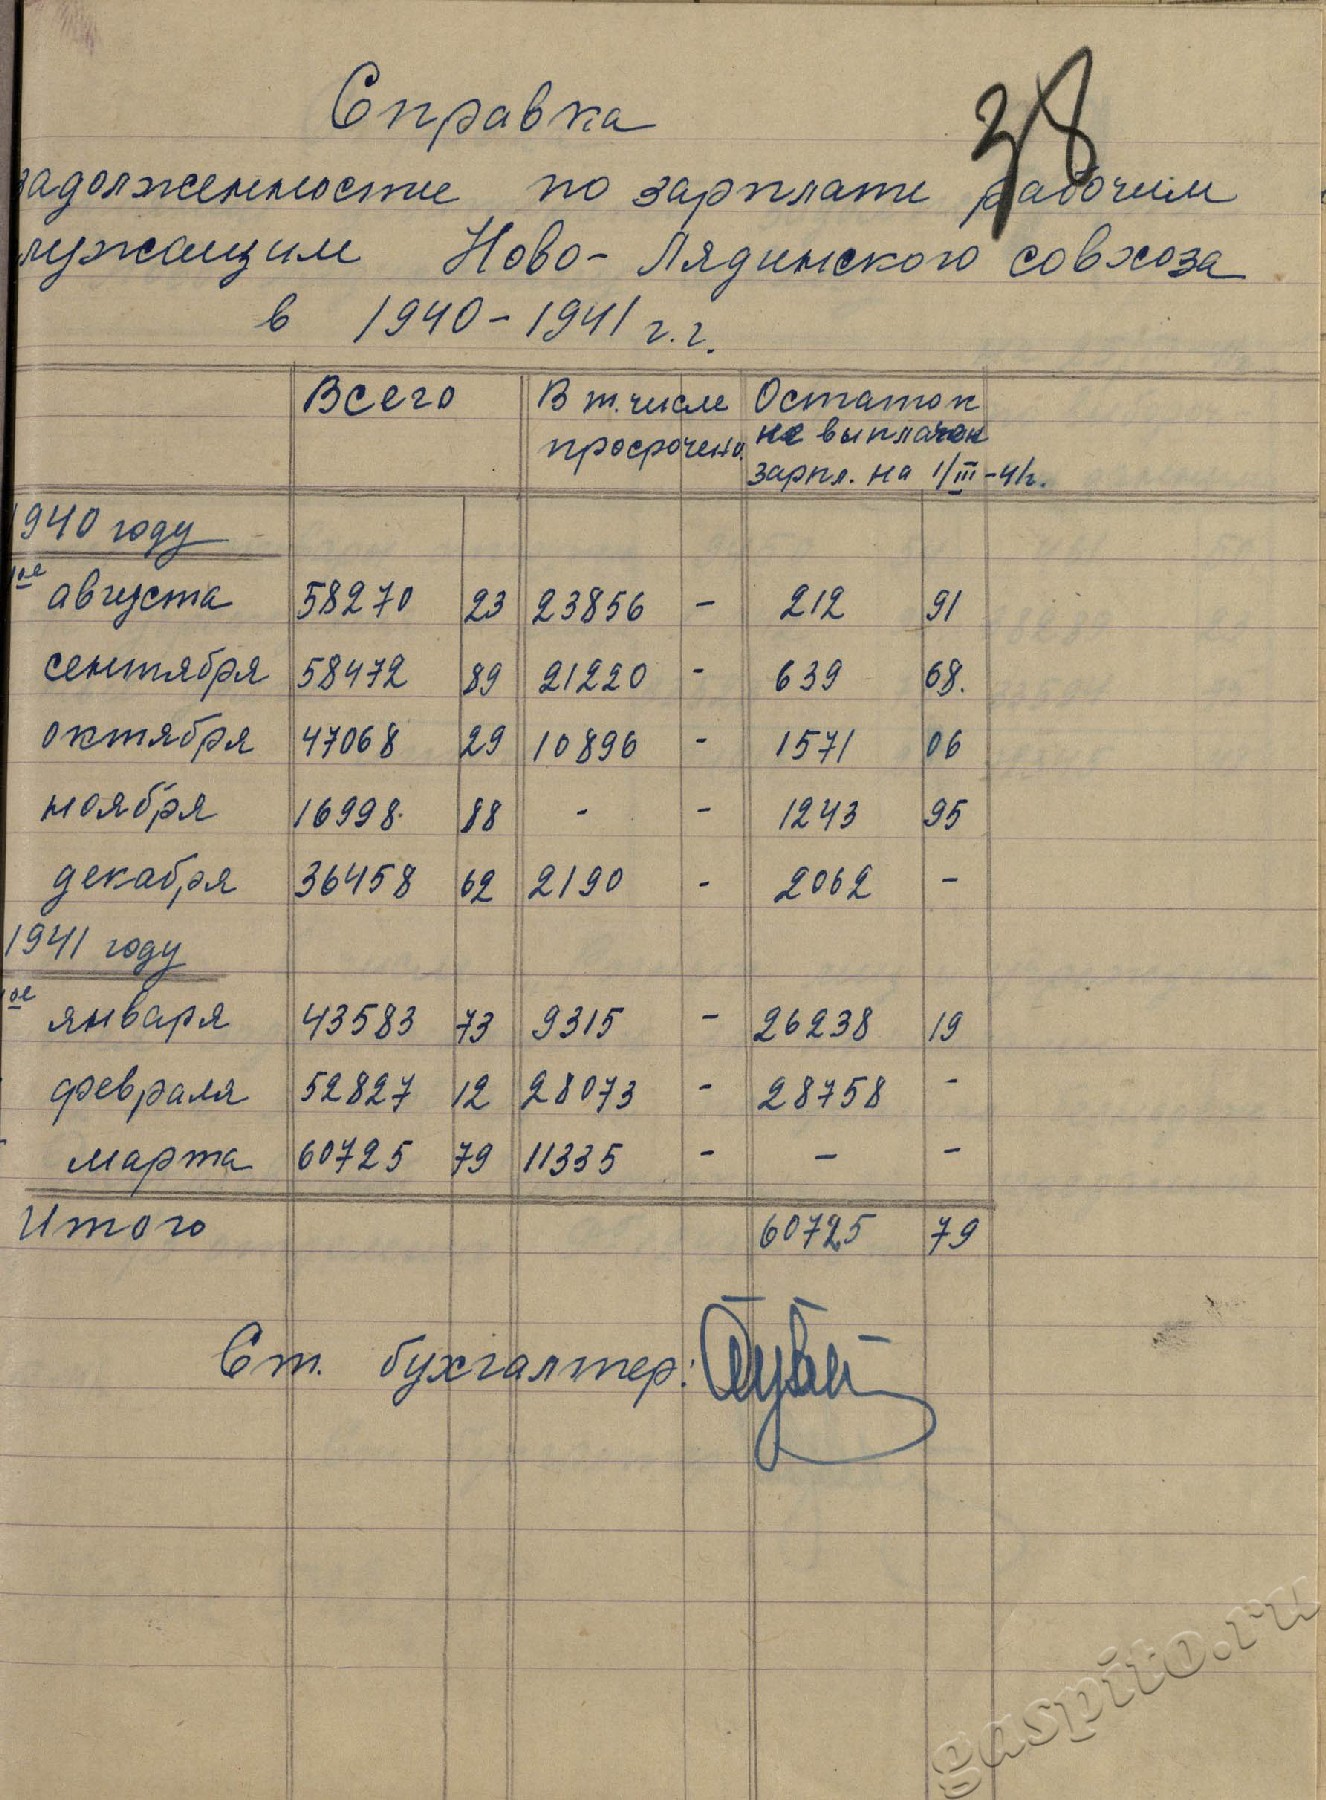 38
Справка
задолженности по зарплате рабочим
служащим Ново-Лядинского совхоза
в 1940-1941 г.г.
Всего В т.числе просрочено. Остаток не выплачен зарпл. на 1/III-41г.
1940 году
1ое августа 58270 23 23856 - 212 91
сентября 58472 89 21220 - 639 68.
октября 47068 29 10896 - 1571 06
ноября 16998. 88 - - 1243 95
декабря 36458 62 2190 - 2062 -
1941 году
1ое января 43583 73 9315 - 26238 19
февраля 52827 12 28073 - 28758 -
марта 60725 79 11335 - - -
Итого 60725 79
Ст. бухгалтер:
gaspito.ru